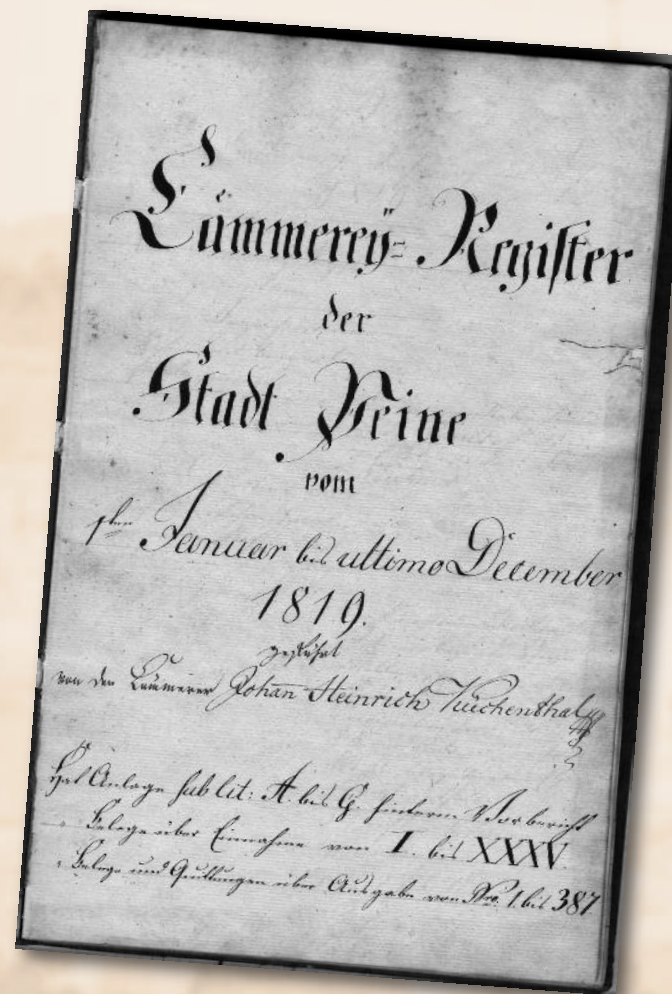 Cämmereÿ=Register
der
Stadt Peine
vom
1sten Januar bis ultimo December
1819.
geführt
von den Cämmerer Johan Heinrich Küchenthal
Hat Anlage sub lit: A. bis G. hinterm Vorbericht
" Belege über Einnahme von I. bis XXXV.
" Belege und Quittungen über Ausgabe von Nro. 1. bis 387